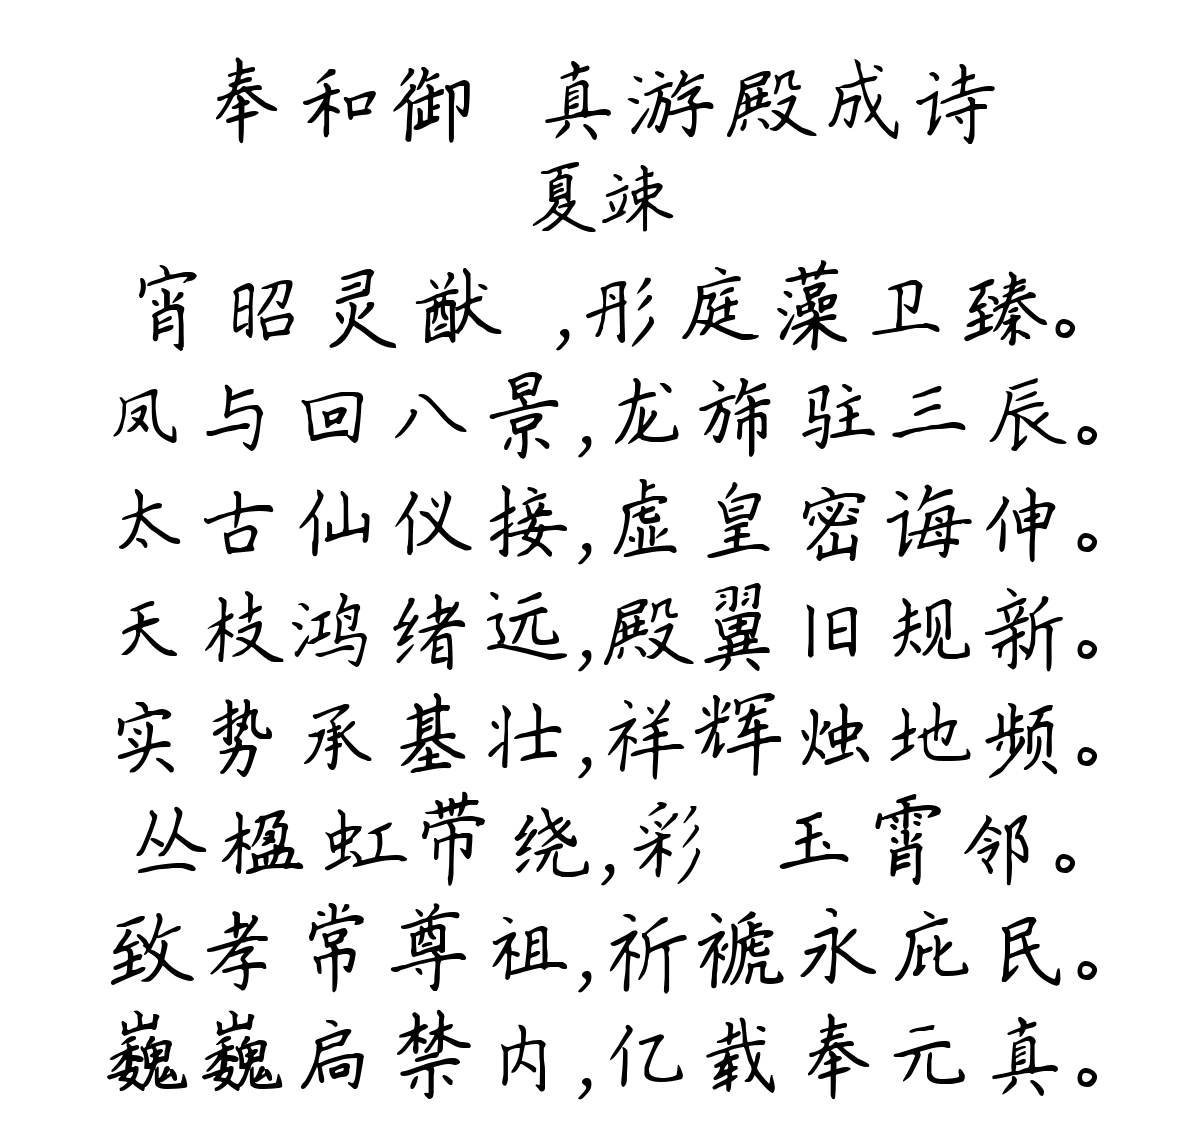 奉和御 真游殿成诗
夏竦
宵昭灵猷 ,彤庭藻卫臻。
凤与回八景,龙旆驻三辰。
太古仙仪接,虚皇密诲伸。
天枝鸿绪远,殿翼旧规新。
实势承基壮,祥辉烛地频。
丛楹虹带绕,彩 玉霄邻。
致孝常尊祖,祈禠永庇民。
巍巍扃禁内,亿载奉元真。